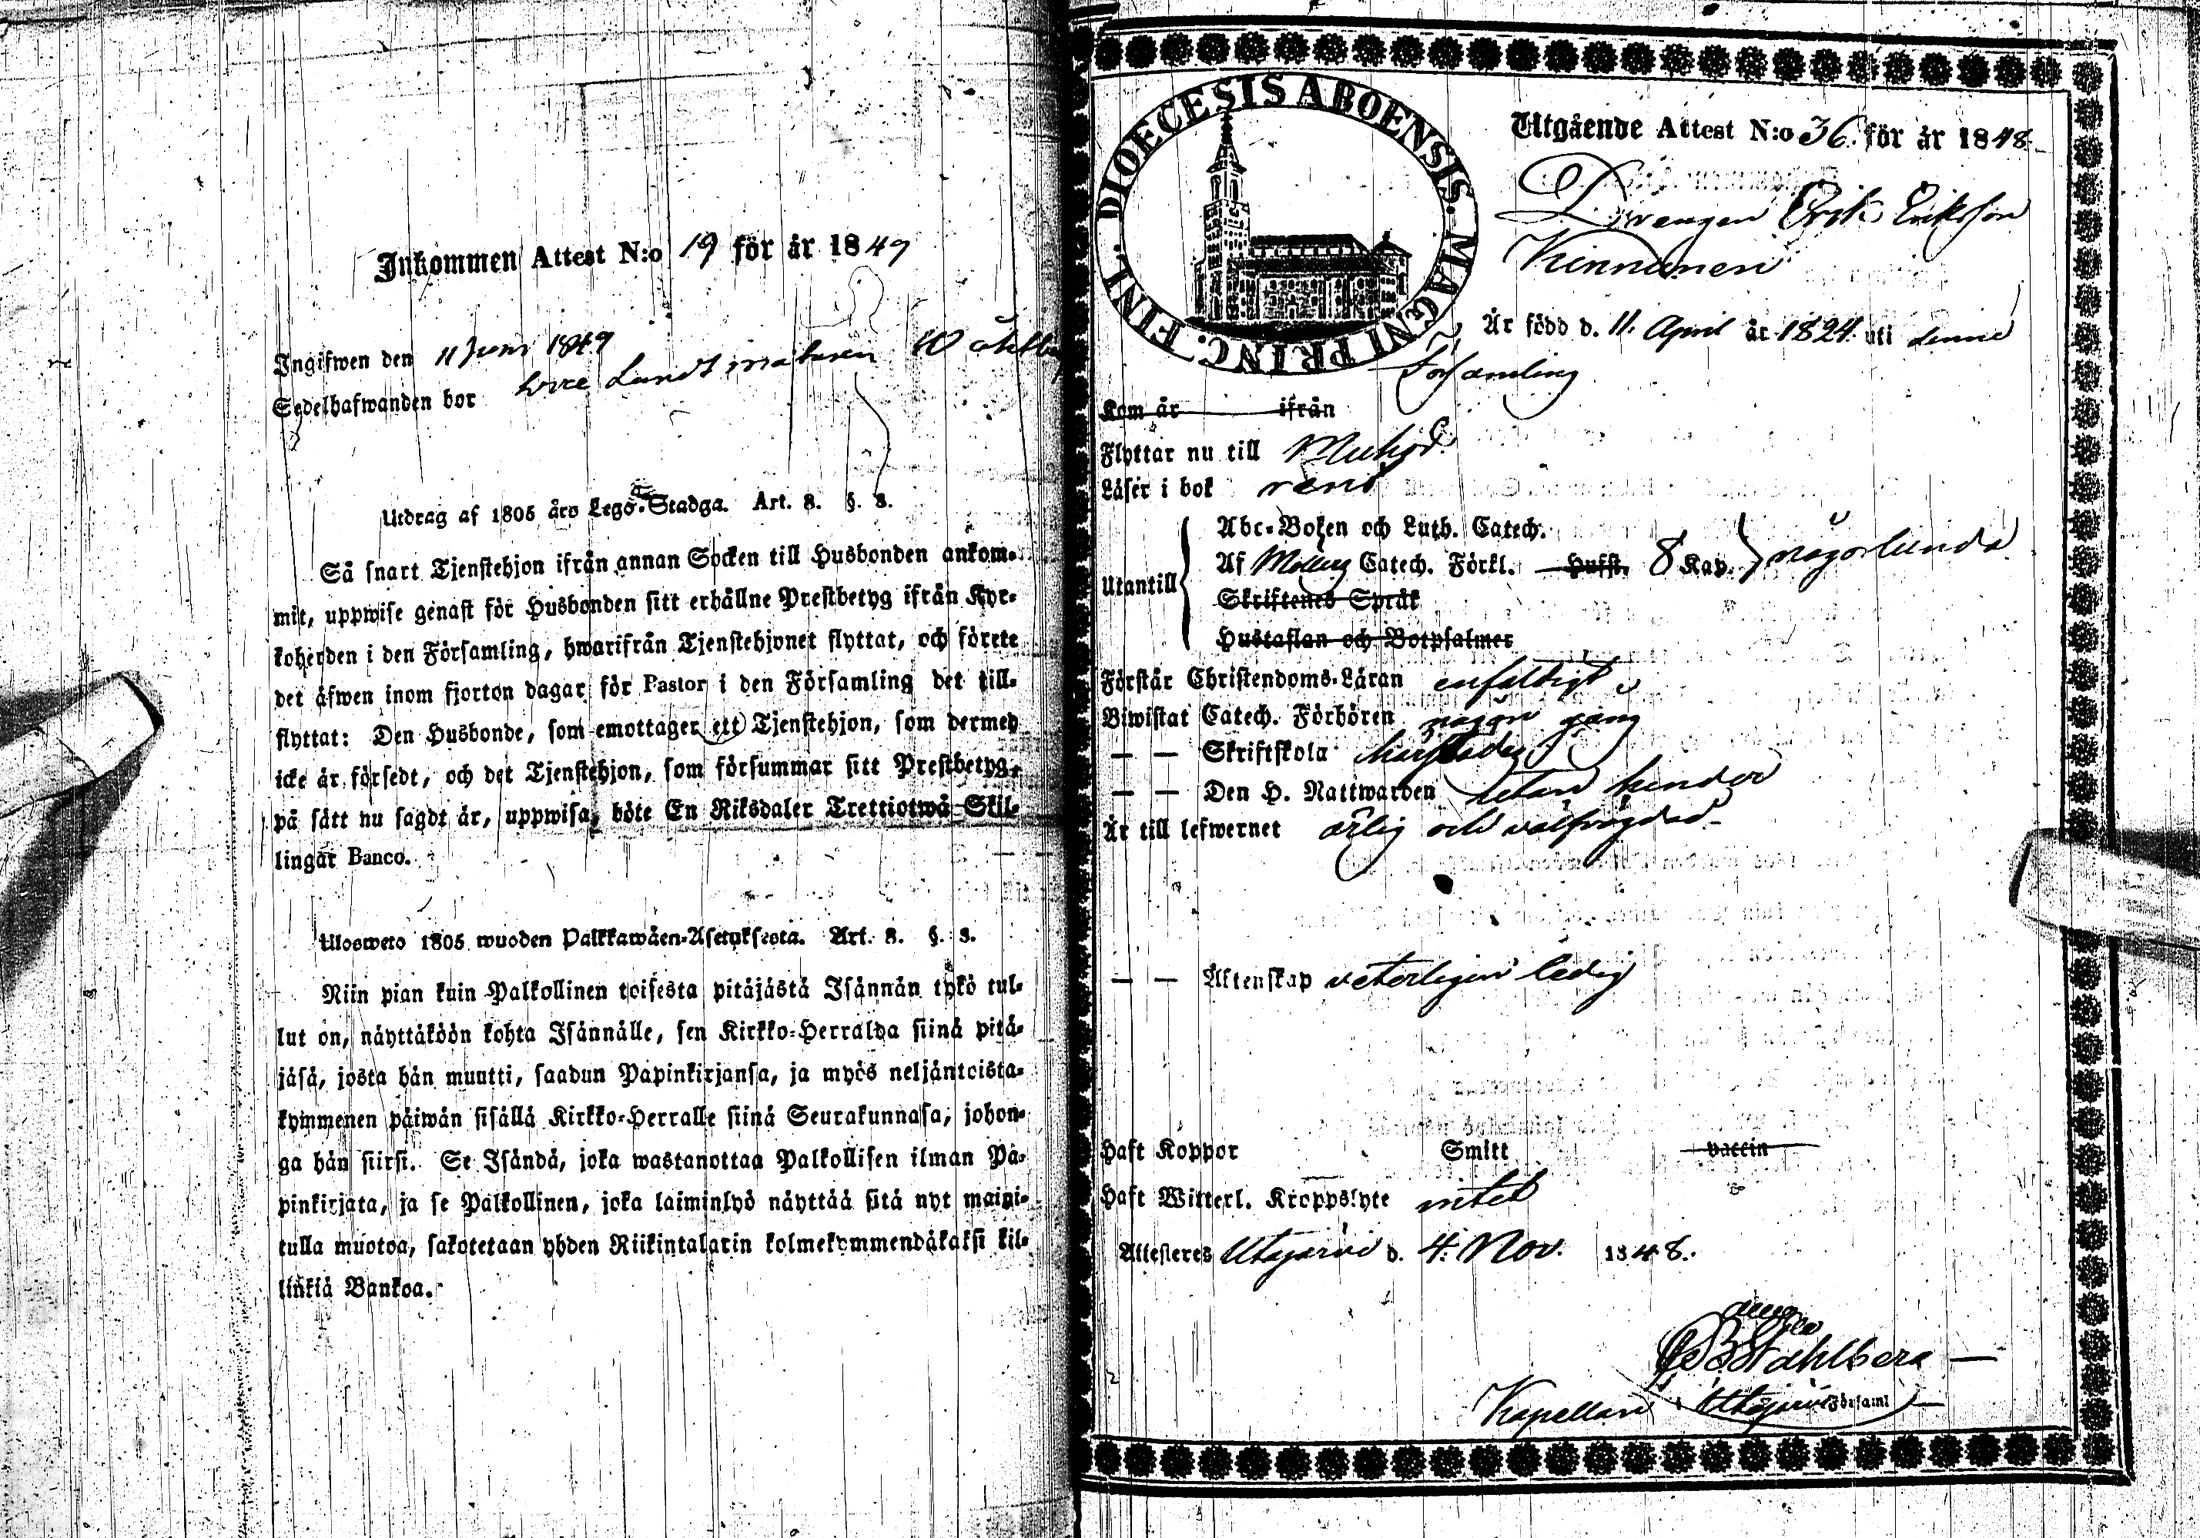 Inkommen Attest N:o 19 för år 1849
Ingifwen den 11 Juni 1849
Sedelhafwanden bor hos Landtmätaren
Utdrag af 1805 års Lego-Stadga. Art. 8. §. 3.
Så snart Tjenstehjon ifrån annan Socken till Husbonden ankom-
mit, uppwise genast för Husbonden sitt erhållne Prestbetyg ifrån Kyr-
koherden i den Församling, hwarifrån Tjenstehjonet flyttat, och förete
det äfwen inom fjorton dagar för Pastor i den Församling det till-
flyttat: Den Husbonde, som emottager ett Tjenstehjon, som dermed
icke är försedt, och det Tjenstehjon, som försummar sitt Prestbetyg,
på sätt nu sagdt är, uppwisa, böte En Riksdaler Trettiotwå Skil-
lingar Banco.
Ulosweto 1805 wuoden Palkkawäen-Asetuksesta. Art. 8. §. 3.
Niin pian kuin Palkollinen toisesta pitäjästä Isännän tykö tul-
lut on, näyttäköön kohta Isännälle, sen Kirkko-Herralda siinä pitä-
jäsä, josta hän muutti, saadun Papinkirjansa, ja myös neljäntoista-
kymmenen päiwän sisällä Kirkko-Herralle siinä Seurakunnasa, johon-
ga hän siirsi. Se Isändä, joka wastanottaa Palkollisen ilman Pa-
pinkirjata, ja se Palkollinen, joka laiminlyö näyttää sitä nyt maini-
tulla muotoa, sakotetaan yhden Riikintalarin kolmekymmendäkaksi kil-
linkiä Bankoa.
DIOECESIS ABOENSIS. MAGNI PRINC. FINL.
Utgående Attest N:o 36. för år 1848.
Drengen Erik Eriksson
Kinnunen
Är född d. 11. April år 1824. uti denne
Församling
Kom år ifrån
Flyttar nu till Muhos.
Läser i bok rent
Utantill
Abc-Boken och Luth. Catech.
Af Möllers Catech. Förkl. Hufst. 8 Kap. någorlunda
Skriftenes Språk
Hustaflan och Botpsalmer
Förstår Christendoms-Läran enfaldigt
Biwistat Catech. Förhören någon gång
— — Skriftskola
— — Den H. Nattwarden utan hinder
Är till lefwernet ärlig och välfrägdad
— — Äktenskap veterligen ledig
Haft Koppor Smitt vaccin
Haft Witterl. Kroppslyte intet
Attesteras Utajärvi d. 4. Nov. 1848.
Stahlberg
Kapellan i Utajärvi Församl